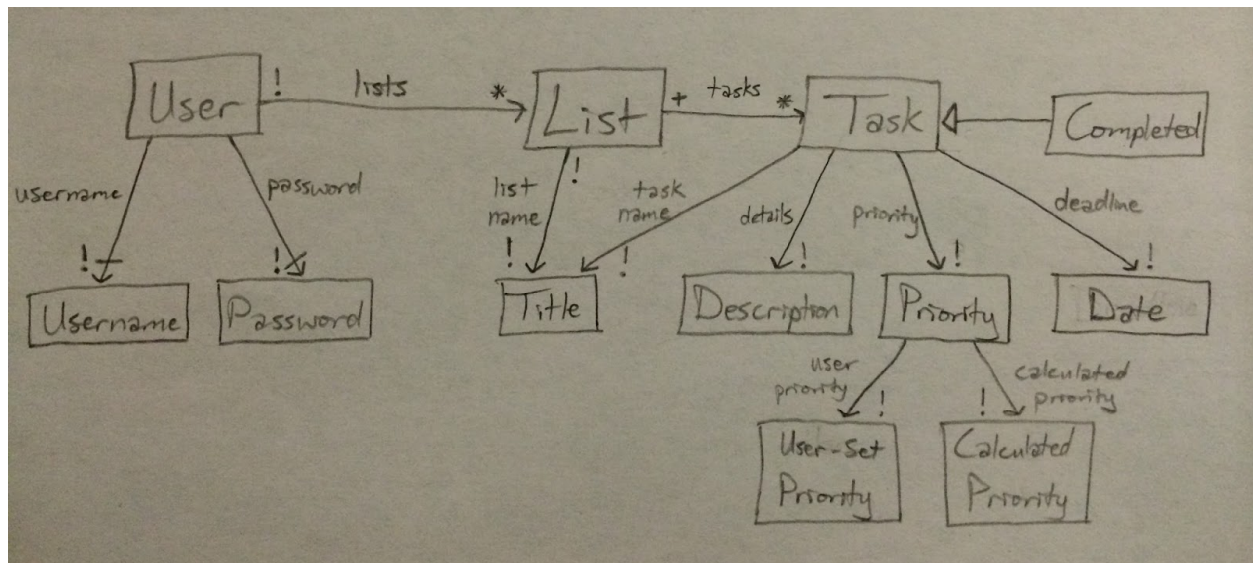 User
! lists *
List
+ tasks *
Task
Completed
username
password
list
name
!
task
name
details
priority
deadline
!
!
!
!
!
!
!
Username
Password
Title
Description
Priority
Date
user
priority
!
!
calculated
priority
User-Set
Priority
Calculated
Priority